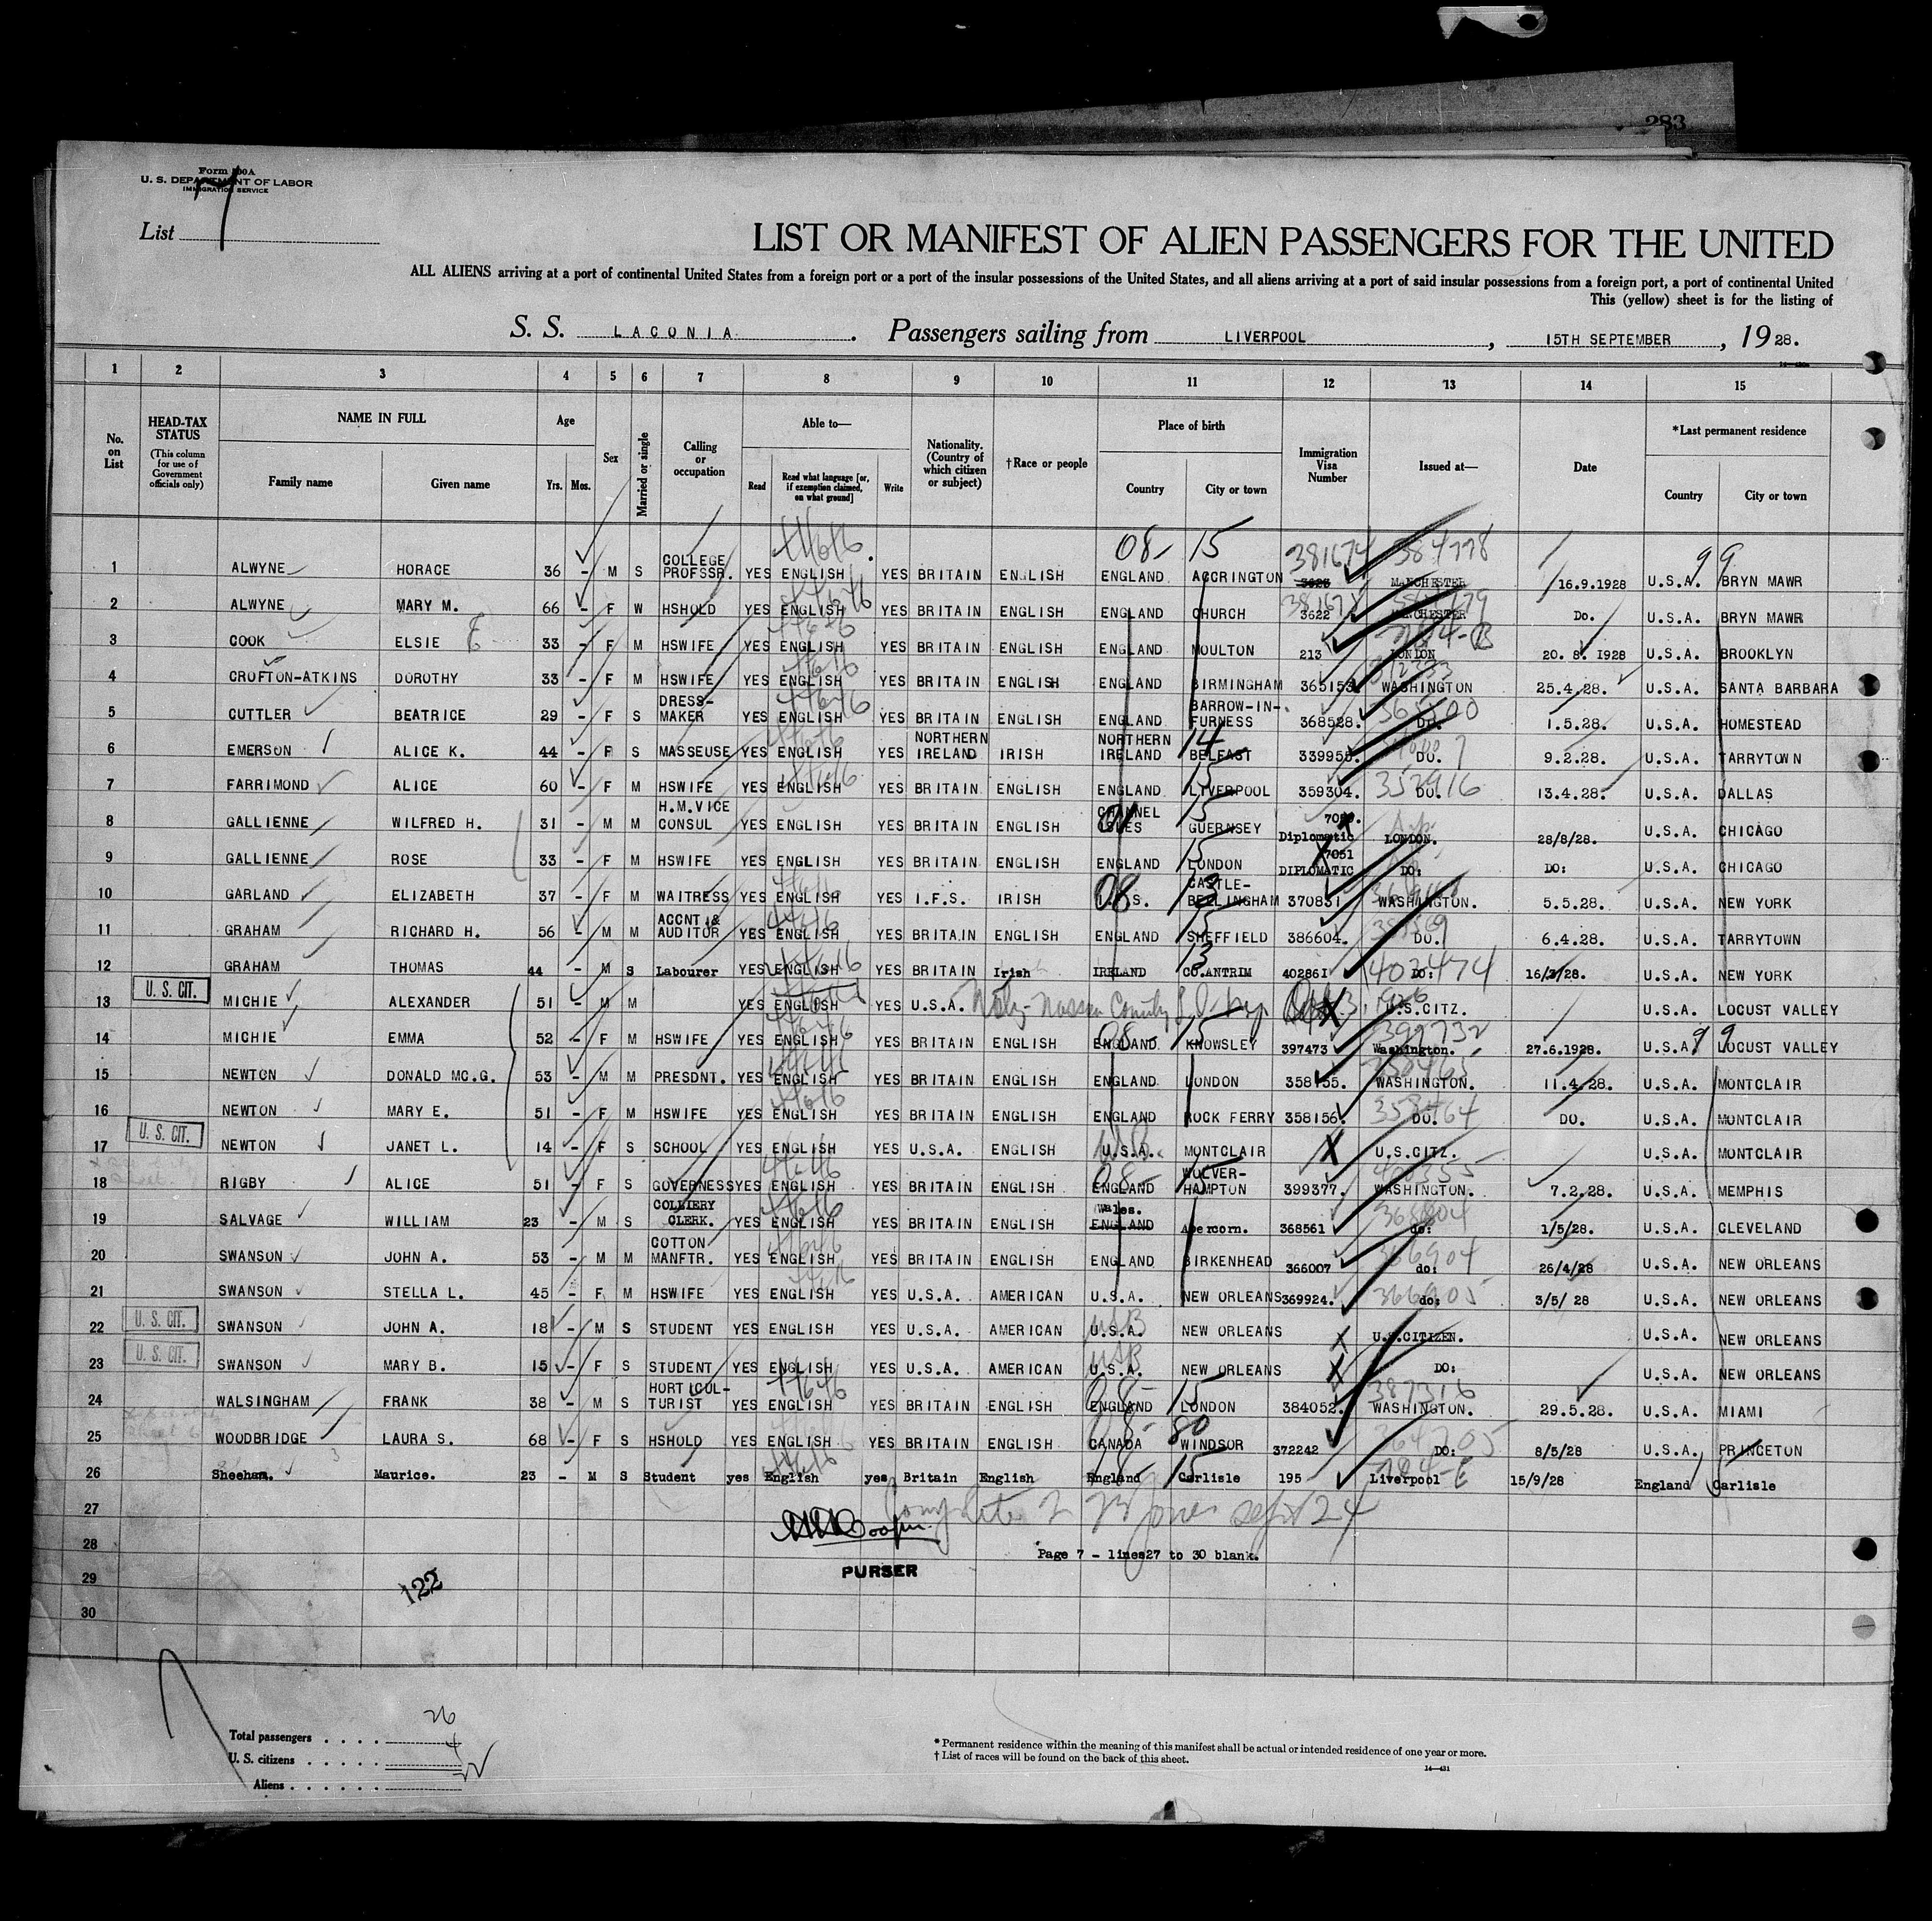 283
Form 500A
U. S. DEPARTMENT OF LABOR
IMMIGRATION SERVICE
List 7
LIST OR MANIFEST OF ALIEN PASSENGERS FOR THE UNITED
ALL ALIENS arriving at a port of continental United States from a foreign port or a port of the insular possessions of the United States, and all aliens arriving at a port of said insular possessions from a foreign port, a port of continental United
This (yellow) sheet is for the listing of
S. S. LACONIA. Passengers sailing from LIVERPOOL, 15TH SEPTEMBER, 1928.
1 2 3 4 5 6 7 8 9 10 11 12 13 14 15
No. on List
HEAD-TAX STATUS (This column for use of Government officials only)
NAME IN FULL Family name Given name
Age Yrs. Mos.
Sex
Married or single
Calling or occupation
Able to— Read Read what language [or, if exemption claimed, on what ground] Write
Nationality. (Country of which citizen or subject)
†Race or people
Place of birth Country City or town
Immigration Visa Number
Issued at—
Date
*Last permanent residence Country City or town
08- 15 381674 384778 99
1 ALWYNE HORACE 36 - M S COLLEGE PROFSSR. YES ENGLISH YES BRITAIN ENGLISH ENGLAND ACCRINGTON 3623 MANCHESTER 16.9.1928 U.S.A. BRYN MAWR
2 ALWYNE MARY M. 66 - F W HSHOLD YES ENGLISH YES BRITAIN ENGLISH ENGLAND CHURCH 3622 MANCHESTER Do. U.S.A. BRYN MAWR
3 COOK ELSIE 33 - F M HSWIFE YES ENGLISH YES BRITAIN ENGLISH ENGLAND MOULTON 213 LONDON 20. 8. 1928 U.S.A. BROOKLYN
4 CROFTON-ATKINS DOROTHY 33 - F M HSWIFE YES ENGLISH YES BRITAIN ENGLISH ENGLAND BIRMINGHAM 365153 WASHINGTON 25.4.28. U.S.A. SANTA BARBARA
5 CUTTLER BEATRICE 29 - F S DRESS-MAKER YES ENGLISH YES BRITAIN ENGLISH ENGLAND BARROW-IN-FURNESS 368528. DO. 1.5.28. U.S.A. HOMESTEAD
6 EMERSON ALICE K. 44 - F S MASSEUSE YES ENGLISH YES NORTHERN IRELAND IRISH NORTHERN IRELAND 14 BELFAST 339955. DO. 9.2.28. U.S.A. TARRYTOWN
7 FARRIMOND ALICE 60 - F M HSWIFE YES ENGLISH YES BRITAIN ENGLISH ENGLAND 15 LIVERPOOL 359304. DO. 13.4.28. U.S.A. DALLAS
8 GALLIENNE WILFRED H. 31 - M M H.M.VICE CONSUL YES ENGLISH YES BRITAIN ENGLISH CHANNEL ISLES 15 GUERNSEY Diplomatic LONDON. 28/8/28. U.S.A. CHICAGO
9 GALLIENNE ROSE 33 - F M HSWIFE YES ENGLISH YES BRITAIN ENGLISH ENGLAND 15 LONDON 7051 DIPLOMATIC DO: DO: U.S.A. CHICAGO
10 GARLAND ELIZABETH 37 - F M WAITRESS YES ENGLISH YES I.F.S. IRISH 08 CASTLE-BELLINGHAM 370831 WASHINGTON. 5.5.28. U.S.A. NEW YORK
11 GRAHAM RICHARD H. 56 - M M ACCNT & AUDITOR YES ENGLISH YES BRITAIN ENGLISH ENGLAND 15 SHEFFIELD 386604. DO. 6.4.28. U.S.A. TARRYTOWN
12 GRAHAM THOMAS 44 - M S Labourer YES ENGLISH YES BRITAIN Irish IRELAND 13 CO.ANTRIM 402861 403474 DO: 16/3/28. U.S.A. NEW YORK
13 U. S. CIT. MICHIE ALEXANDER 51 - M M YES ENGLISH YES U.S.A. Natz- Nassau County 1926 U.S.CITZ. U.S.A. LOCUST VALLEY
14 MICHIE EMMA 52 - F M HSWIFE YES ENGLISH YES BRITAIN ENGLISH 08- ENGLAND 15 KNOWSLEY 397473 397732 Washington. 27.6.1928. U.S.A. 99 LOCUST VALLEY
15 NEWTON DONALD MC.G. 53 - M M PRESDNT. YES ENGLISH YES BRITAIN ENGLISH ENGLAND LONDON 358155. WASHINGTON. 11.4.28. U.S.A. MONTCLAIR
16 NEWTON MARY E. 51 - F M HSWIFE YES ENGLISH YES BRITAIN ENGLISH ENGLAND ROCK FERRY 358156 358464 DO. DO. U.S.A. MONTCLAIR
17 U. S. CIT. NEWTON JANET L. 14 - F S SCHOOL YES ENGLISH YES U.S.A. ENGLISH U.S.A. MONTCLAIR X U.S.CITZ. U.S.A. MONTCLAIR
18 RIGBY ALICE 51 - F S GOVERNESS YES ENGLISH YES BRITAIN ENGLISH 08- ENGLAND 15 WOLVER-HAMPTON 399377. WASHINGTON. 7.2.28. U.S.A. MEMPHIS
19 SALVAGE WILLIAM 23 - M S COLLIERY CLERK. YES ENGLISH YES BRITAIN ENGLISH Wales. ENGLAND Abercorn. 368561 do: 1/5/28. U.S.A. CLEVELAND
20 SWANSON JOHN A. 53 - M M COTTON MANFTR. YES ENGLISH YES BRITAIN ENGLISH ENGLAND BIRKENHEAD 366007 366904 do: 26/4/28 U.S.A. NEW ORLEANS
21 SWANSON STELLA L. 45 - F M HSWIFE YES ENGLISH YES U.S.A. AMERICAN U.S.A. NEW ORLEANS 369924. 366905 do: 3/5/ 28 U.S.A. NEW ORLEANS
22 U. S. CIT. SWANSON JOHN A. 18 - M S STUDENT YES ENGLISH YES U.S.A. AMERICAN USB U.S.A. NEW ORLEANS X U.S.CITIZEN. U.S.A. NEW ORLEANS
23 U. S. CIT. SWANSON MARY B. 15 - F S STUDENT YES ENGLISH YES U.S.A. AMERICAN USB U.S.A. NEW ORLEANS X DO: U.S.A. NEW ORLEANS
24 WALSINGHAM FRANK 38 - M S HORTICUL-TURIST YES ENGLISH YES BRITAIN ENGLISH 08- ENGLAND 15 LONDON 384052. 387316 WASHINGTON. 29.5.28. U.S.A. MIAMI
25 WOODBRIDGE LAURA S. 68 - F S HSHOLD YES ENGLISH YES BRITAIN ENGLISH CANADA 80 WINDSOR 372242 364705 DO: 8/5/28 U.S.A. PRINCETON
26 Sheehan. Maurice. 23 - M S Student yes English yes Britain English England 15 Carlisle 195 Liverpool 15/9/28 England Carlisle
27
28 Page 7 - lines27 to 30 blank.
29 PURSER
122
30
Total passengers . . . . 26
U. S. citizens . . . . . 4
Aliens . . . . . . 22
* Permanent residence within the meaning of this manifest shall be actual or intended residence of one year or more.
† List of races will be found on the back of this sheet.
14—431